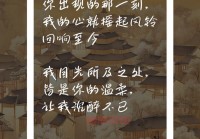 你出现的那一刻,
我的心就挂起风铃
回响至今
我目光所及之处,
皆是你的温柔,
让我沉醉不已